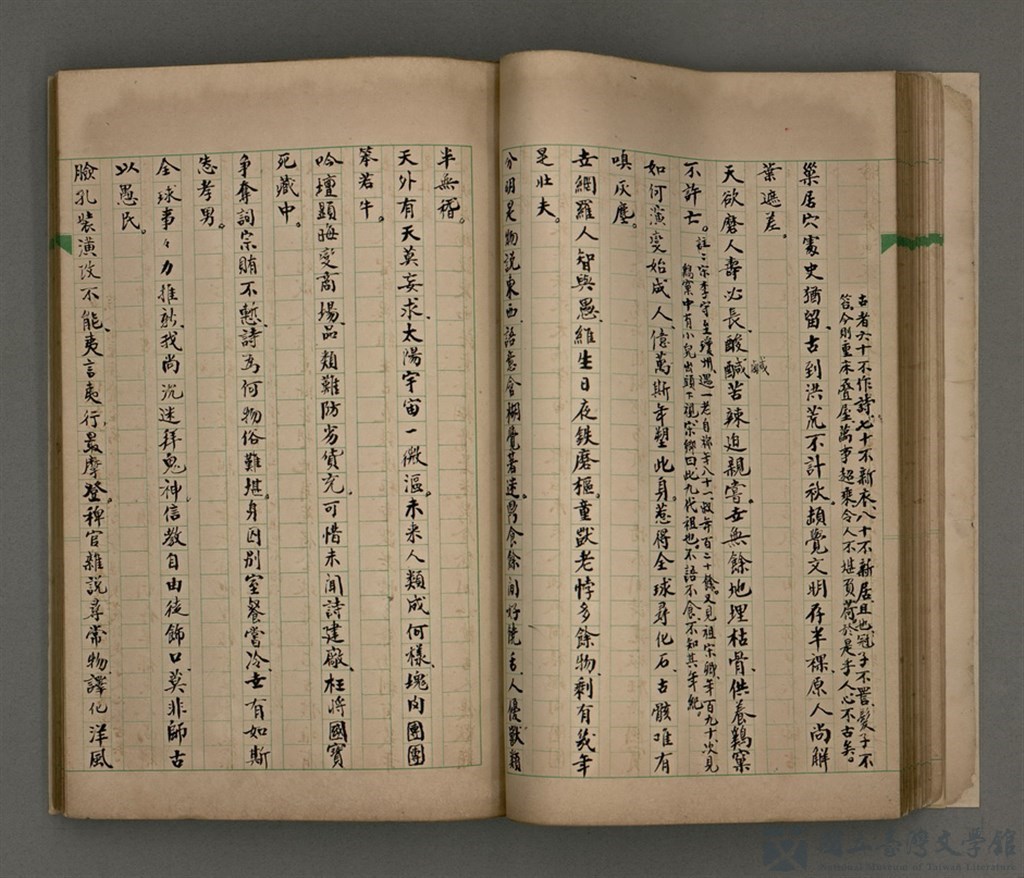 古者六十不作詩、七十不新衣、八十不新居且也冠子不詈、髮子不
笞今則重床疊屋萬事超乘令人不堪負荷於是乎人心不古矣。
巢居穴處史猶留、古到洪荒不計秋、頡覺文明存半裸、原人尚解
葉遮羞。
天欲磨人壽必長、酸鹹苦辣迫親嘗、世無餘地埋枯骨、供養鷄窠
鹹
不許亡。註:宋李守忠瓊州遇一老自稱年八十一、叔年百二十餘、又見祖宋卿、年百九十、次見
鷄窠中有小兒出頭下視宗卿曰此九代祖也。不語不食、不知其年紀。
如何演變始成人、億萬斯年塑此身、惹得全球尋化石、古骸唯有
嗅灰塵。
世網羅人智與愚、維生日夜鉄磨樞、童獃老悖多餘物、剩有幾年
是壯夫。
分明是物說東西、語意含糊覺著迷、飽食餘閒好饒舌、人優獸類
半無稽。
天外有天莫妄求、太陽宇宙一微漚、未來人類成何樣、塊肉團團
笨若牛。
吟壇顯晦變商場、品類難防劣貨充、可惜未聞詩建廠、枉將國寶
死藏中。
爭奪詞宗賄不慙、詩為何物俗難堪、身囚別室餐嘗冷、世有如斯
耄孝男。
全球事々力推新、我尚沉迷拜鬼神、信教自由徒飾口、莫非師古
以愚民。
臉孔裝潢改不能、夷言夷行最摩登、稗官雜說尋常物、譯化洋風
國立臺灣文學館
National Museum of Taiwan Literature